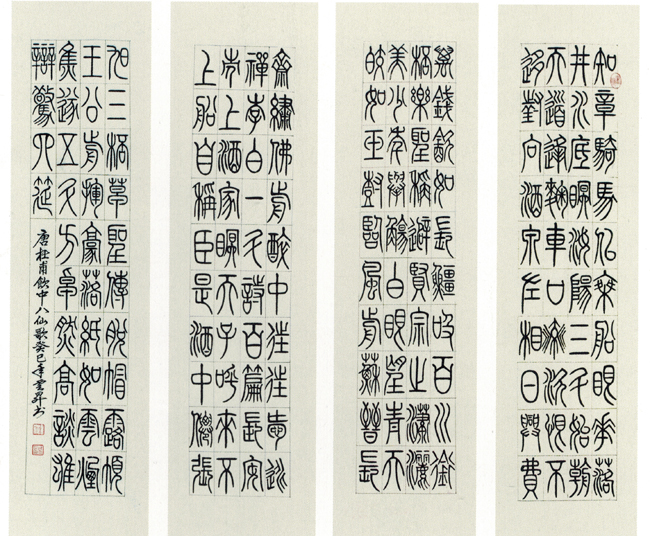 知章騎馬似乘船眼花落
井水底眠汝陽三斗始朝
天道逢麴車口流涎恨不
移封向酒泉左相日興費
萬錢飲如長鯨吸百川銜
杯樂聖稱避賢宗之瀟灑
美少年舉觴白眼望青天
皎如玉樹臨風前蘇晉長
齋繡佛前醉中往往愛逃
禪李白一斗詩百篇長安
市上酒家眠天子呼來不
上船自稱臣是酒中僊張
旭三杯草聖傳脫帽露頂
王公前揮豪落紙如雲煙
焦遂五斗方卓然高談雄
辯驚四筵
唐杜甫飲中八仙歌癸巳年雲昇書